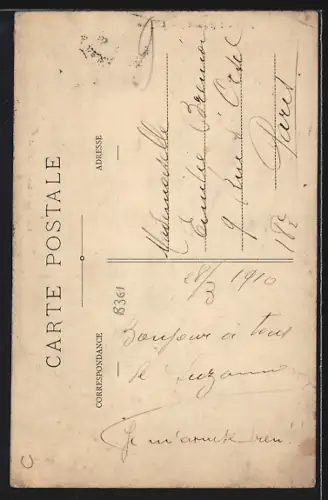 CARTE POSTALE
CORRESPONDANCE
ADRESSE
8361
28/2 1910
Bonjour à tous
de Suzanne
Je m'arrête
Mademoiselle
Emilie
9 Rue d'Orsel
Paris
18E
C